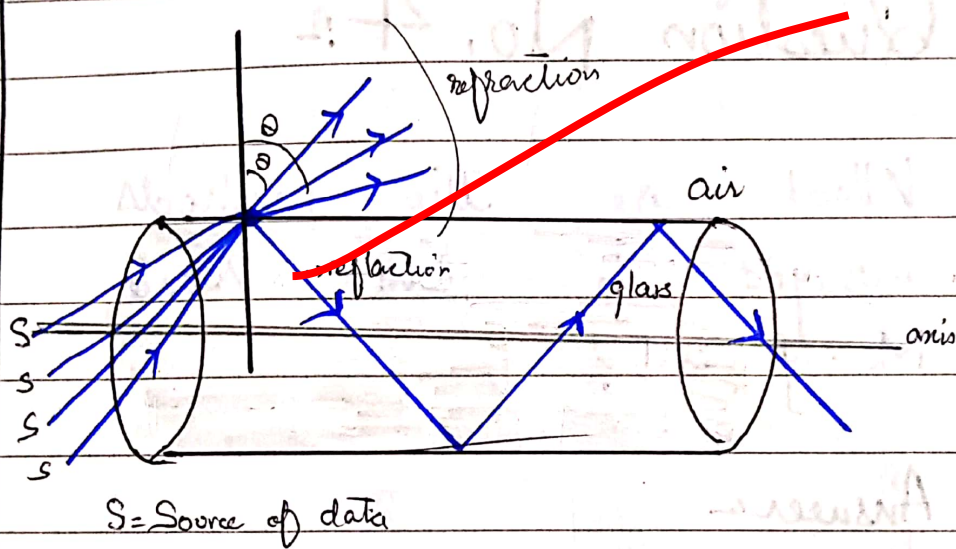 refraction
θ
θ
air
reflaction
glass
S
axis
S
S
S
S = Source of data